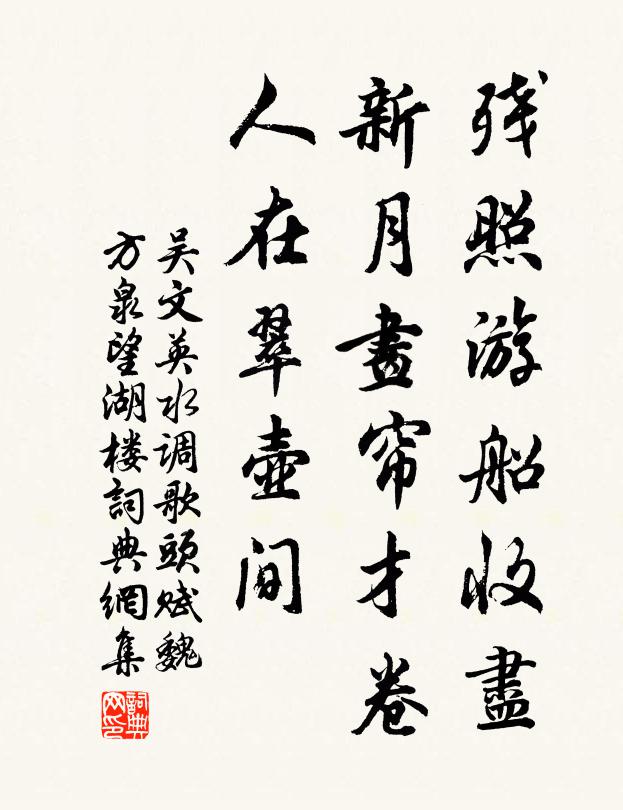 残照游船收盡
新月畫帘才卷
人在翠壺间
吴文英水调歌頭赋魏
方泉望湖楼詞典網集
詞典
网印